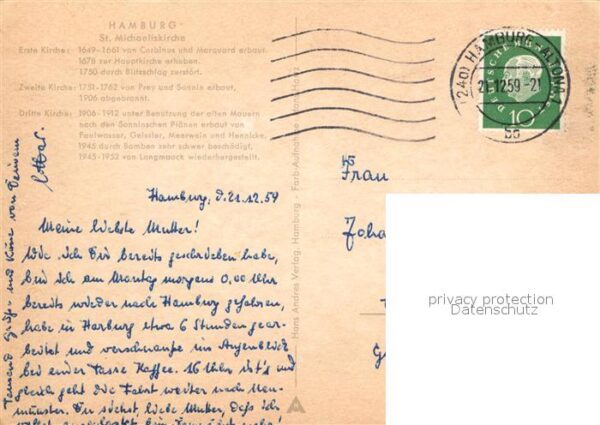 HAMBURG
St. Michaeliskirche
Erste Kirche: 1649-1661 von Corbinus und Marquard erbaut.
1678 zur Hauptkirche erhoben.
1750 durch Blitzschlag zerstört.
Zweite Kirche: 1751-1762 von Prey und Sonnin erbaut,
1906 abgebrannt.
Dritte Kirche: 1906-1912 unter Benutzung der alten Mauern
nach den Sonninschen Plänen erbaut von
Faulwasser, Geissler, Meerwein und Hennicke,
1945 durch Bomben sehr schwer beschädigt,
1945-1952 von Langmaack wiederhergestellt.
Hamburg, d. 21.12.59
Meine liebste Mutter!
Wie ich Dir bereits geschrieben habe,
bin ich am Montag morgens 0.00 Uhr
bereits wieder nach Hamburg gefahren,
habe in Harburg etwa 6 Stunden gear-
beitet und verschnaufe im Augenblick
bei einer Tasse Kaffee. 16 Uhr ist's und
gleich geht die Fahrt weiter nach Neu-
münster. Du siehst, liebe Mutter, daß ich
Tausend Grüße und Küsse von Deinem
Lothar.
Hans Andres Verlag, Hamburg - Farb-Aufnahme: Hans Hartz
(24a) HAMBURG-ALTONA 1
21.12.59-21
bc
DEUTSCHE BUNDESPOST
10
Frau
Joha
privacy protection
Datenschutz